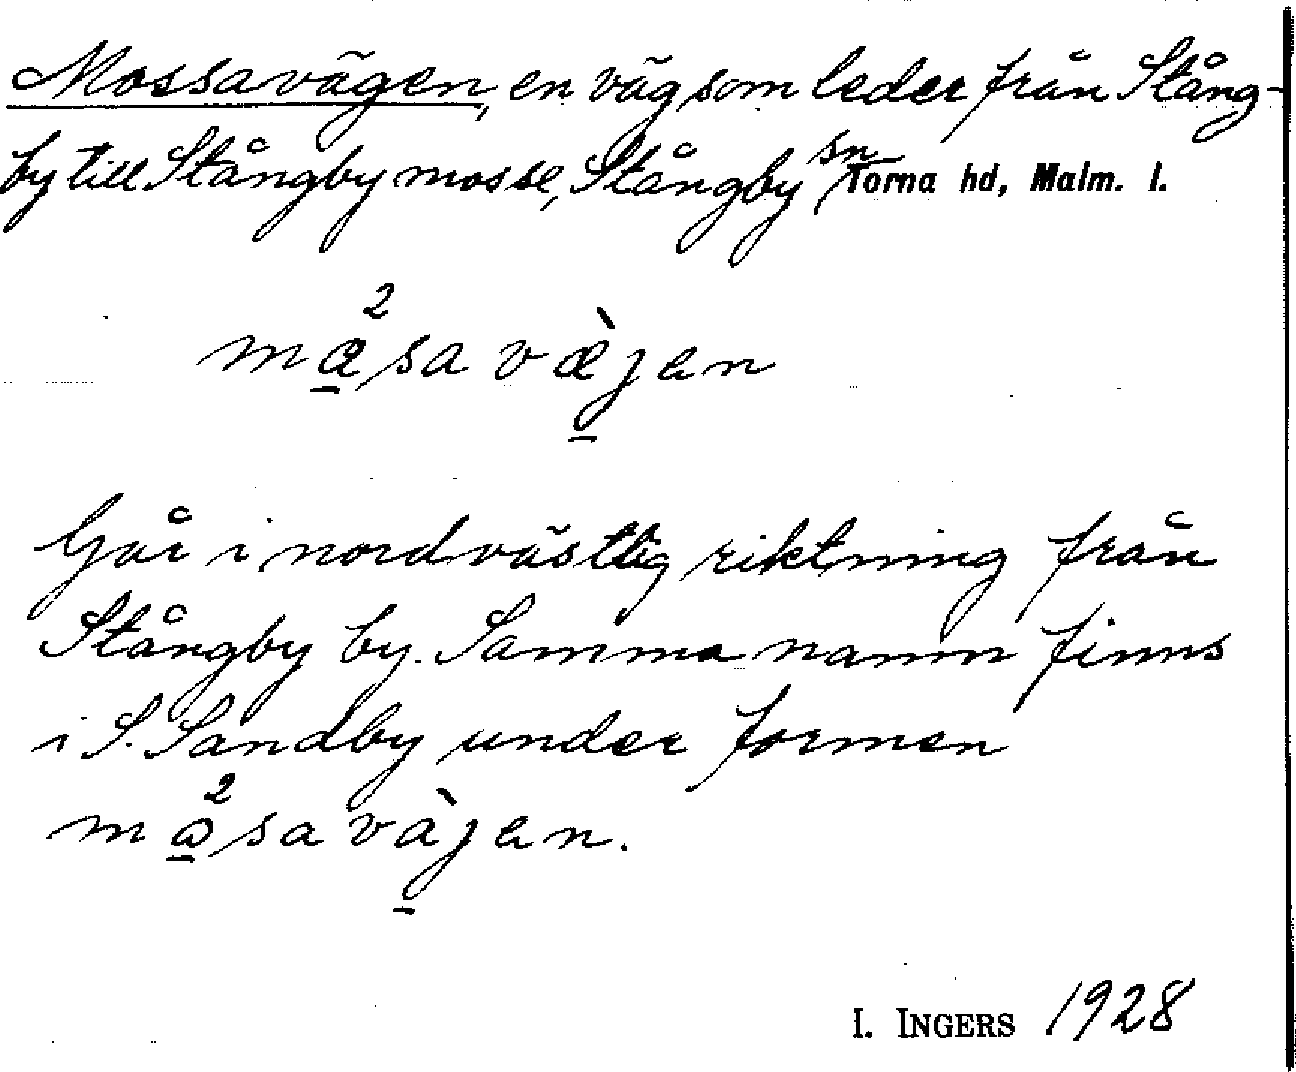 Mossavägen, en väg som leder från Stång-
by till Stångby mosse, Stångby sn Torna hd, Malm. l.
mæ²sa væ̀jen
Går i nordvästlig riktning från
Stångby by. Samma namn finns
i S. Sandby under formen
må²sa vàjen.
I. INGERS 1928